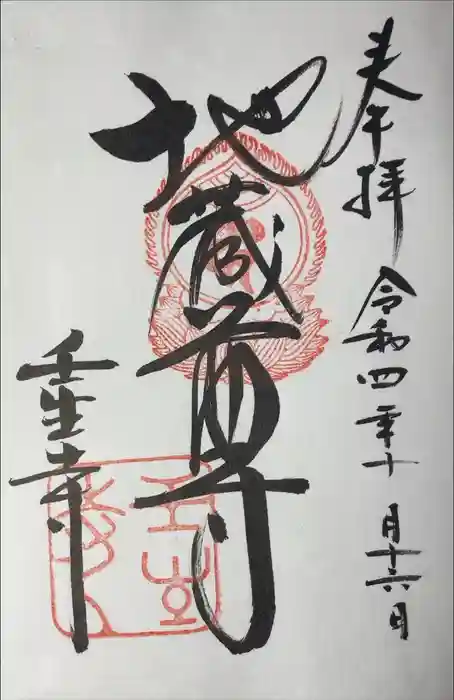 奉拝 令和四年十月十六日
地蔵尊
壬生寺